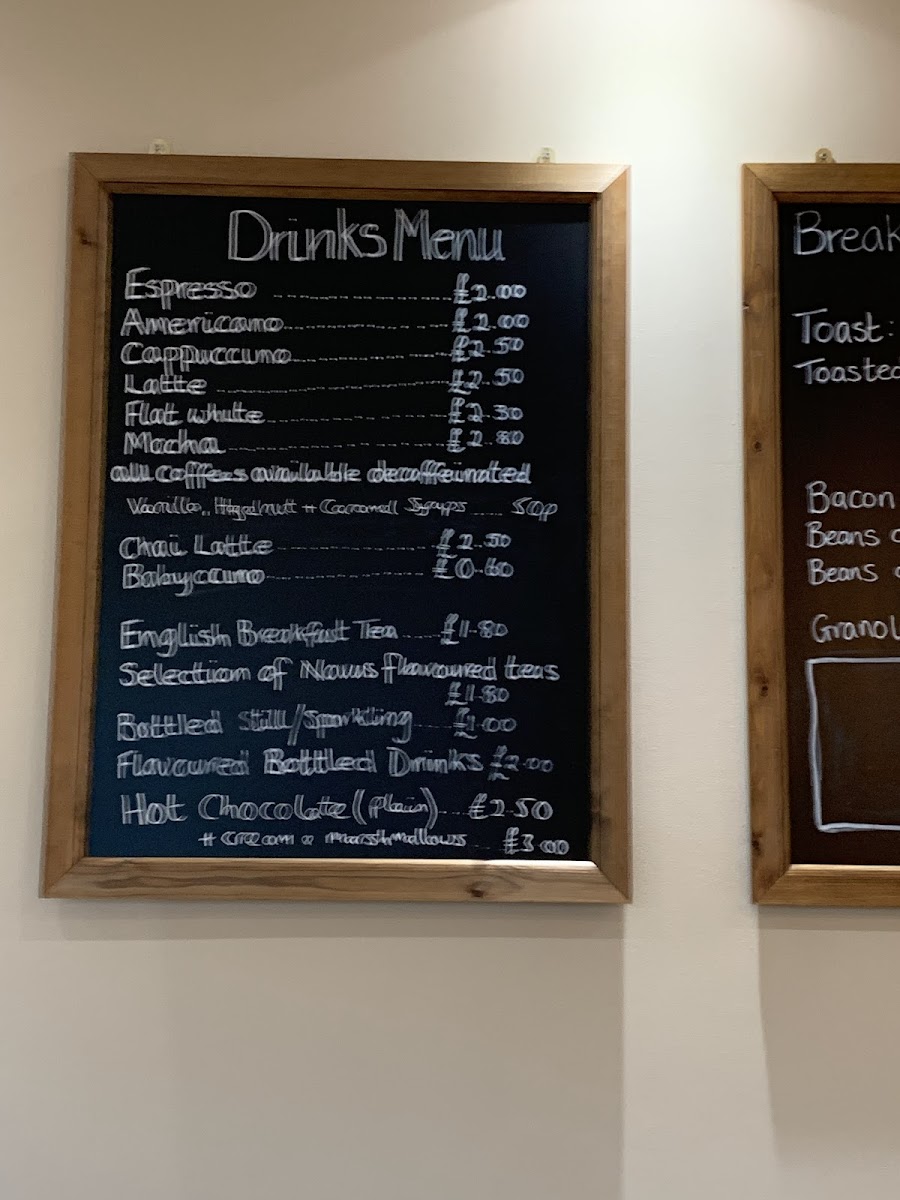 Drinks Menu
Espresso ........ £2.00
Americano ........ £2.00
Cappuccino ........ £2.50
Latte ........ £2.50
Flat white ........ £2.30
Mocha ........ £2.80
all coffees available decaffeinated
Vanilla, Hazelnut + Caramel Syrups ..... 50p
Chai Latte ........ £2.50
Babyccino ........ £0.60
English Breakfast Tea ..... £1.80
Selection of flavoured teas
£1.80
Bottled Still/Sparkling ..... £1.00
Flavoured Bottled Drinks £2.00
Hot Chocolate (plain) .... £2.50
+ cream & marshmallows ... £3.00
Break
Toast:
Toasted
Bacon
Beans
Beans
Granol